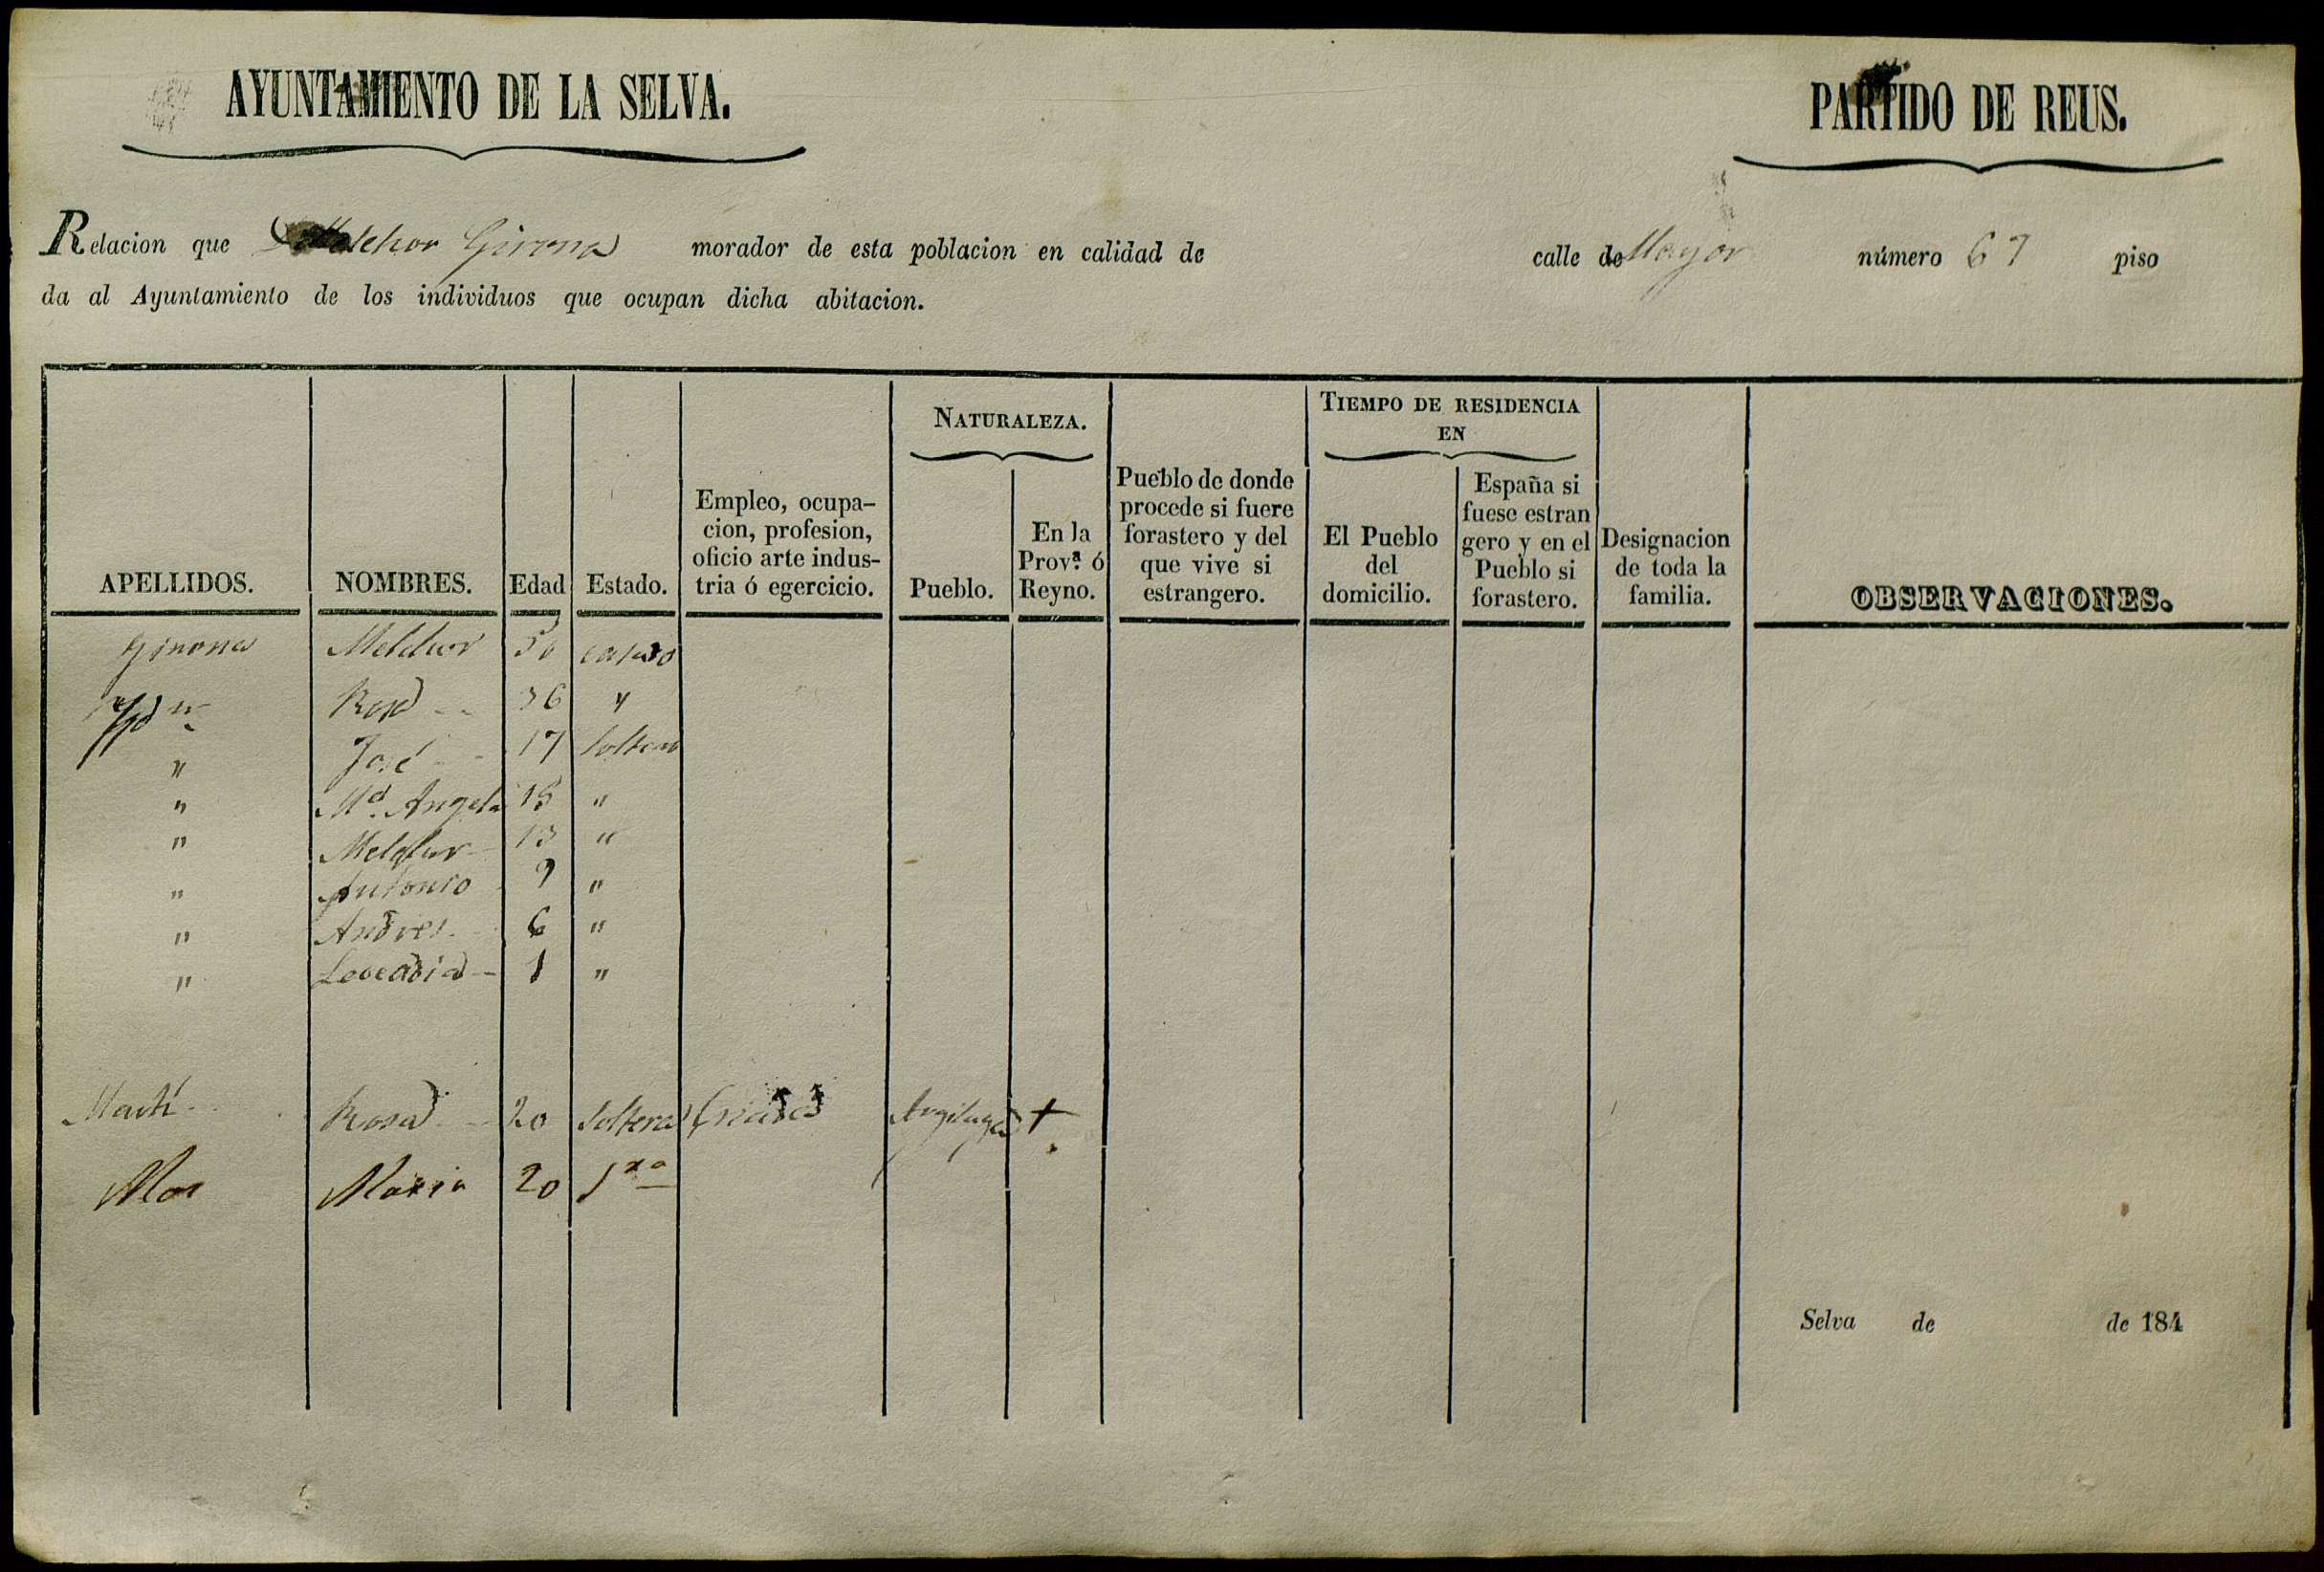 AYUNTAMIENTO DE LA SELVA.
PARTIDO DE REUS.
Relacion que Melchor Girona morador de esta poblacion en calidad de calle de Mayor número 67 piso
da al Ayuntamiento de los individuos que ocupan dicha abitacion.
APELLIDOS.
NOMBRES.
Edad
Estado.
Empleo, ocupa-
cion, profesion,
oficio arte indus-
tria ó egercicio.
NATURALEZA.
Pueblo.
En la
Prov.ª ó
Reyno.
Pueblo de donde
procede si fuere
forastero y del
que vive si
estrangero.
TIEMPO DE RESIDENCIA
EN
El Pueblo
del
domicilio.
España si
fuese estran
gero y en el
Pueblo si
forastero.
Designacion
de toda la
familia.
OBSERVACIONES.
Girona Melchor 50 casado
" Rosa -- 36 "
" José -- 17 soltero
" Mª. Angela 15 "
" Melchor - 13 "
" Antonio 9 "
" Andres - 6 "
" Leocadia - 1 "
Martí Rosa 20 soltera Criada +
Mas Maria 20 Sra
Selva de de 184